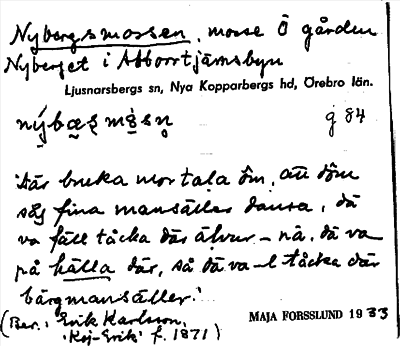 Nybergsmossen, mosse Ö gården
Nyberget i Abborrtjärnsbyn
Ljusnarsbergs sn, Nya Kopparbergs hd, Örebro län.
g 84
"Där bruka mor tala ôm, att dôm
såg fina mansäller dansa, dä
va fäll tåcka där älvur – nä, dä va
på källa där, så dä va-l tåcka där
bärgmansäller."
(Ber.: Erik Karlsson,
'Koj-Erik' f. 1871)
MAJA FORSSLUND 1933